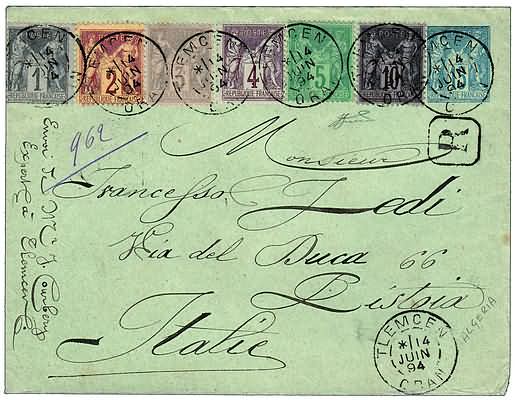 1 2 3 4 5 10 15
POSTES
REPUBLIQUE FRANÇAISE
TLEMCEN
14
JUIN
94
ORAN
962
R
Monsieur
Francesco Zedi
Via del Duca 66
Pistoia
Italie
Envoi de
à Tlemcen
TLEMCEN
14
JUIN
94
ORAN
ALGERIA